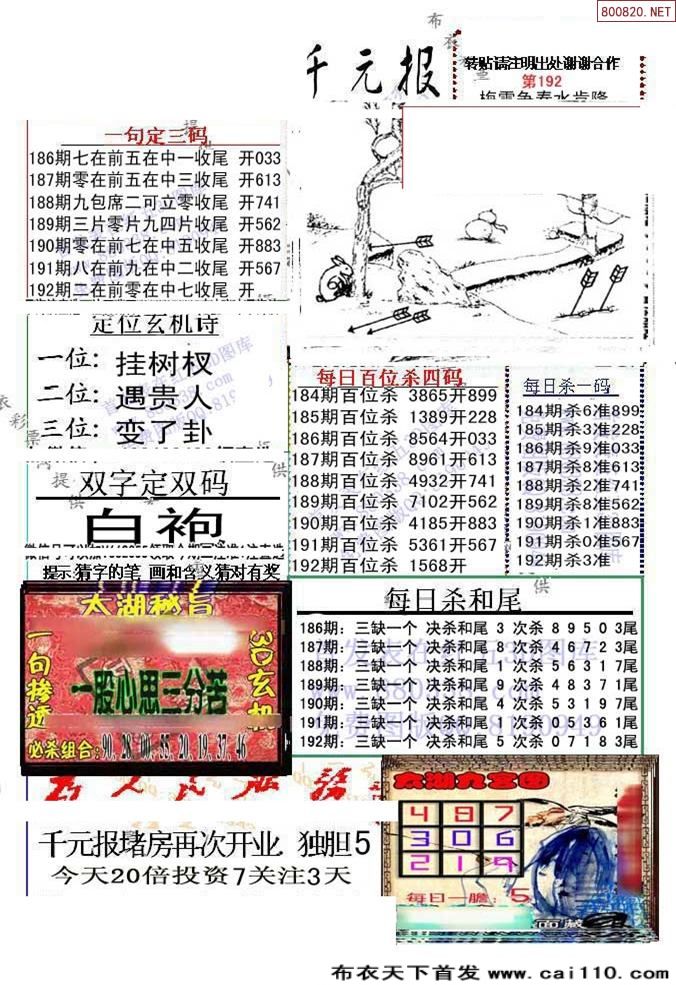 800820.NET
千元报
转贴请注明出处谢谢合作
第192
梅雪争春水肯降
一句定三码
186期七在前五在中一收尾 开033
187期零在前五在中三收尾 开613
188期九包席二可立零收尾 开741
189期三片零片九四片收尾 开562
190期零在前七在中五收尾 开883
191期八在前九在中二收尾 开567
192期二在前零在中七收尾 开
定位玄机诗
一位: 挂树杈
二位: 遇贵人
三位: 变了卦
双字定双码
白袍
提示:猜字的笔 画和含义猜对有奖
每日百位杀四码
184期百位杀 3865开899
185期百位杀 1389开228
186期百位杀 8564开033
187期百位杀 8961开613
188期百位杀 4932开741
189期百位杀 7102开562
190期百位杀 4185开883
191期百位杀 5361开567
192期百位杀 1568开
每日杀一码
184期杀6准899
185期杀3准228
186期杀9准033
187期杀8准613
188期杀2准741
189期杀8准562
190期杀1准883
191期杀0准567
192期杀3准
每日杀和尾
186期: 三缺一个 决杀和尾 3 次杀 8 9 5 0 3尾
187期: 三缺一个 决杀和尾 8 次杀 4 6 7 2 3尾
188期: 三缺一个 决杀和尾 1 次杀 5 6 3 1 7尾
189期: 三缺一个 决杀和尾 9 次杀 4 8 3 7 1尾
190期: 三缺一个 决杀和尾 4 次杀 5 3 1 9 7尾
191期: 三缺一个 决杀和尾 7 次杀 0 5 3 6 1尾
192期: 三缺一个 决杀和尾 5 次杀 0 7 1 8 3尾
太湖秘旨
一句掺透
3D玄机
一股心思三分苦
必杀组合:90,28,00,55,20,19,37,46
太湖九宫图
4 8 7
3 0 6
2 1 9
每日一胆: 5
面藏
千元报堵房再次开业 独胆5
今天20倍投资7关注3天
布衣天下首发 www.cai110.com